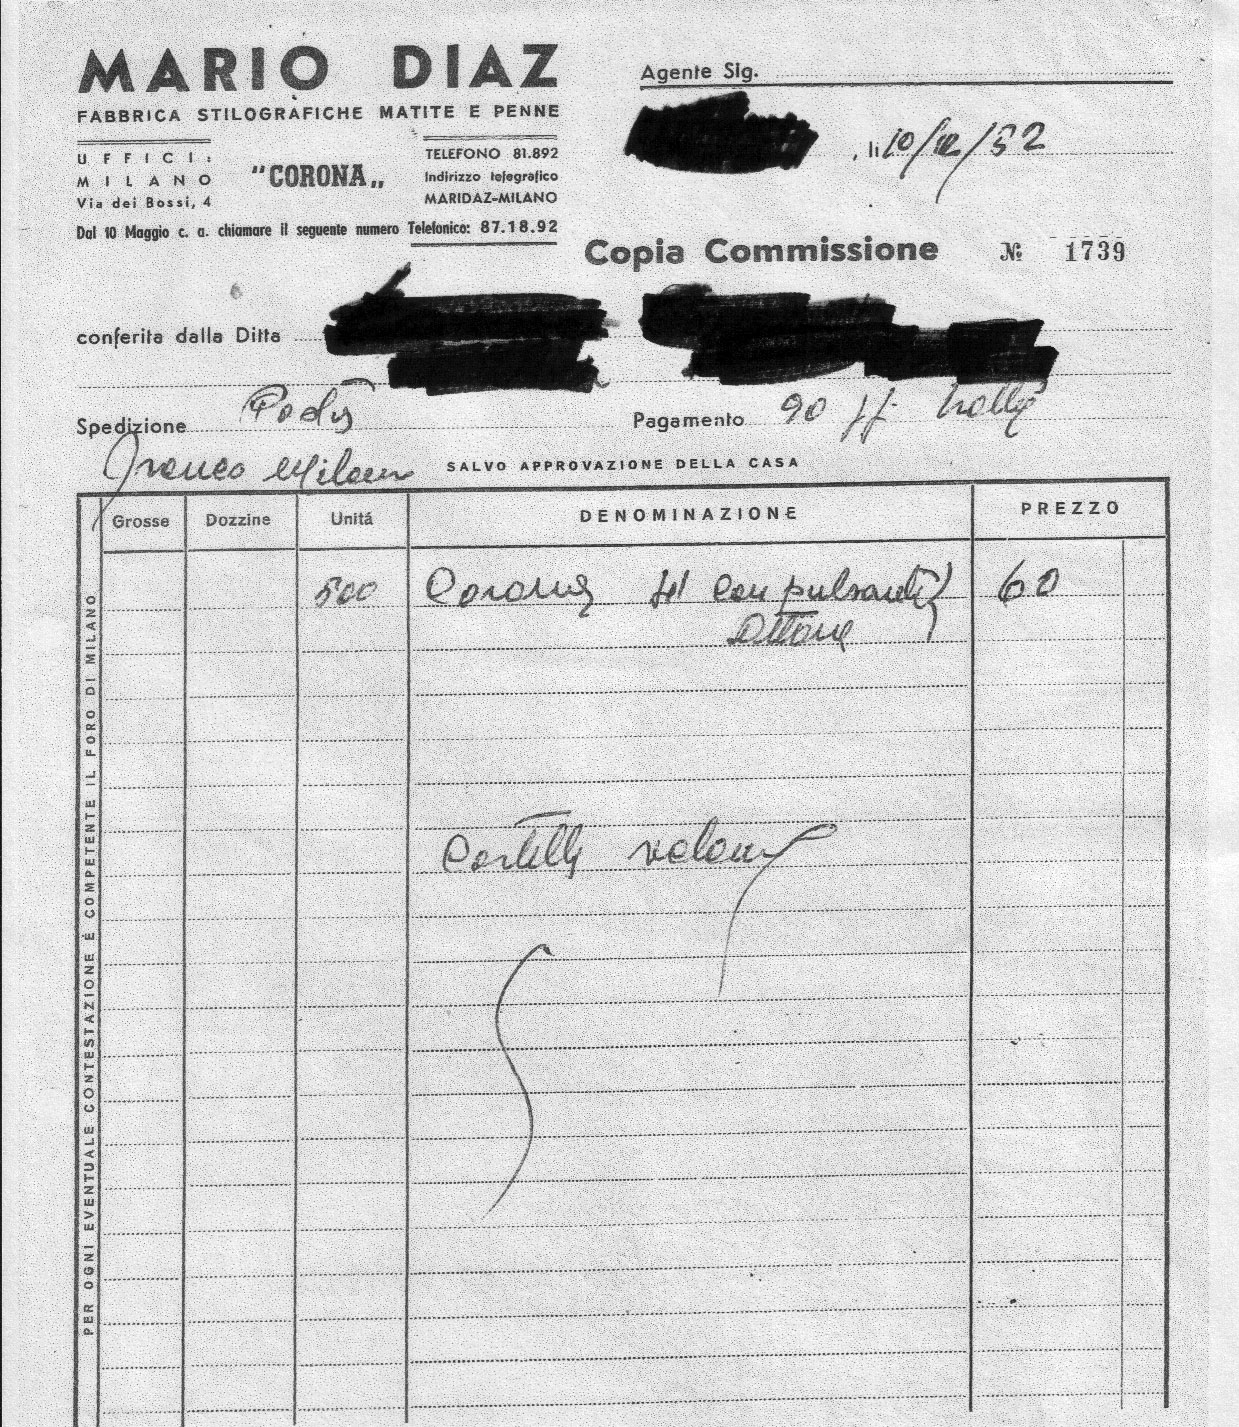 MARIO DIAZ
FABBRICA STILOGRAFICHE MATITE E PENNE
UFFICI:
MILANO
Via dei Bossi, 4
"CORONA„
TELEFONO 81.892
Indirizzo telegrafico
MARIDAZ-MILANO
Dal 10 Maggio c. a. chiamare il seguente numero Telefonico: 87.18.92
Agente Sig.
, li 10/12/52
Copia Commissione № 1739
conferita dalla Ditta
Spedizione
Pagamento 90
Franco Milano
SALVO APPROVAZIONE DELLA CASA
Grosse Dozzine Unitá DENOMINAZIONE PREZZO
500 Corona con pulsanti 60
Ottone
PER OGNI EVENTUALE CONTESTAZIONE É COMPETENTE IL FORO DI MILANO